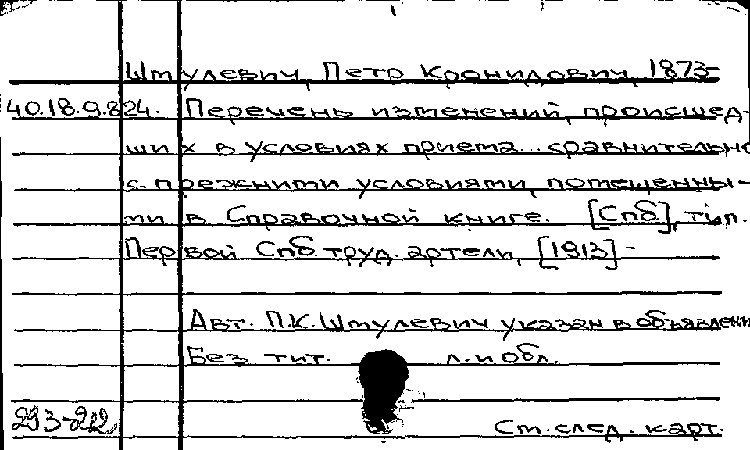 Штулевич, Петр Кронидович, 1873-
40.18.9.824. Перечень изменений, происшед-
ших в условиях приема... сравнительно
с прежними условиями, помещенны-
ми в Справочной книге. [Спб], тип.
Первой Спб. труд. артели, [1913] -
Авт. П.К. Штулевич указан в объявлени
Без тит. л. и обл.
293-212
См. след. карт.